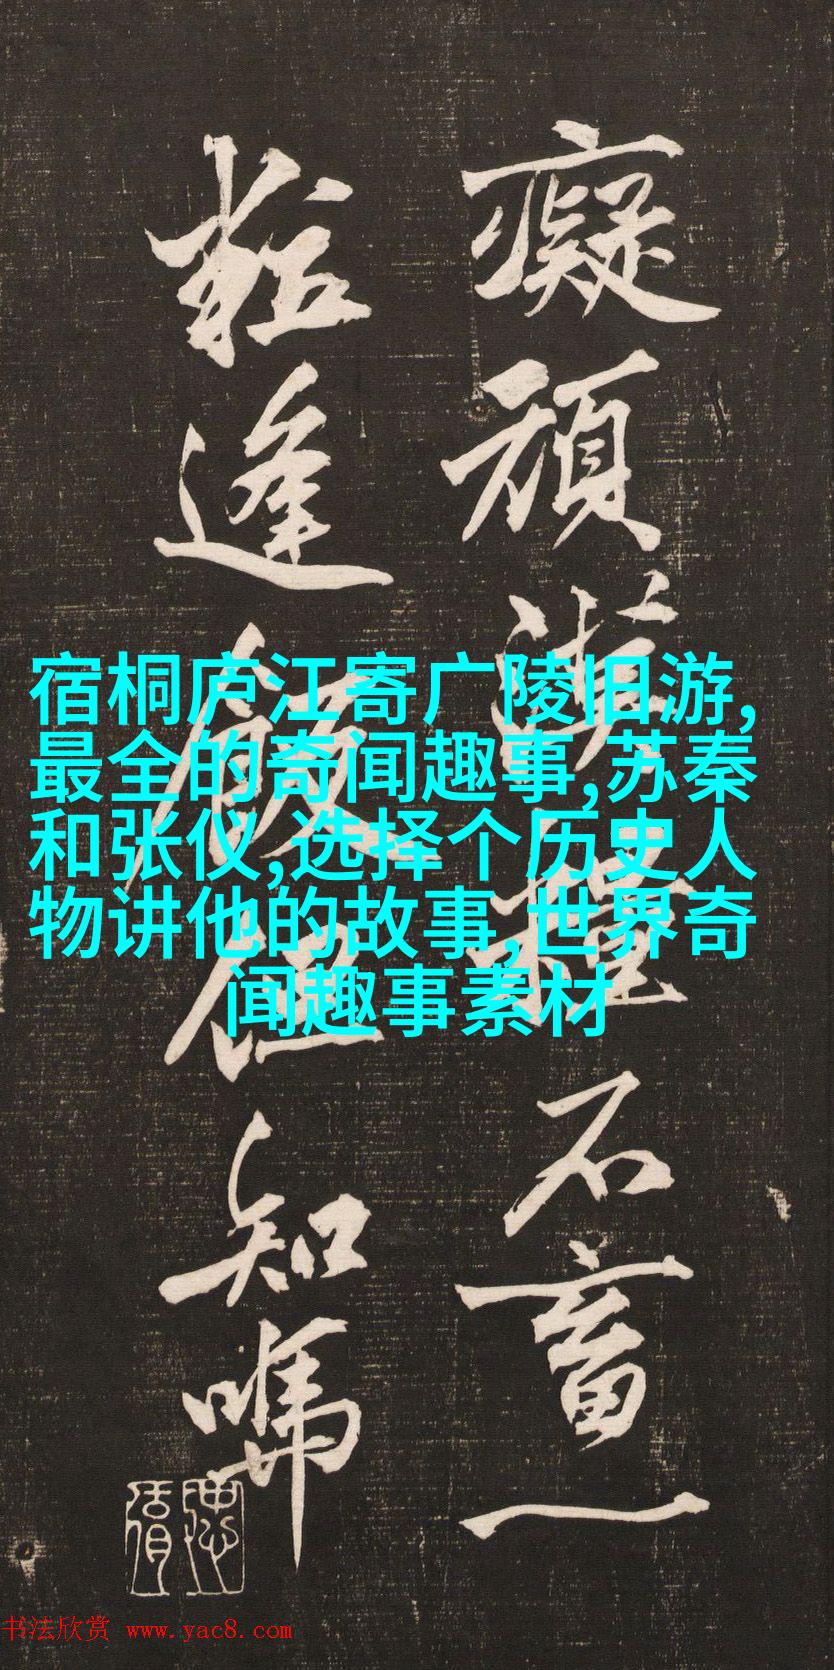 癡頑石畜一
逢飯知
宿桐庐江寄广陵旧游,
最全的奇闻趣事,苏秦
和张仪,选择个历史人
物讲他的故事,世界奇
闻趣事素材
书法欣赏 www.yac8.com